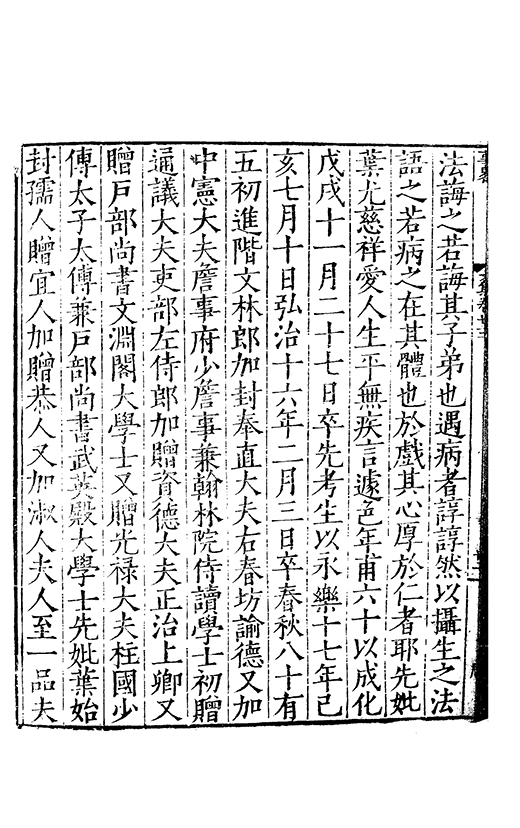 法誨之若誨其子弟也遇病者諄諄然以攝生之法
語之若病之在其體也於戲其心厚於仁者耶先妣
葉尤慈祥愛人生平無疾言遽色年甫六十以成化
戊戌十一月二十七日卒先考生以永樂十七年己
亥七月十日弘治十六年二月三日卒春秋八十有
五初進階文林郎加封奉直大夫右春坊諭德又加
中憲大夫詹事府少詹事兼翰林院侍讀學士初贈
通議大夫吏部左侍郎加贈資德大夫正治上卿又
贈戶部尚書文淵閣大學士又贈光祿大夫柱國少
傅太子太傅兼戶部尚書武英殿大學士先妣葉始
封孺人贈宜人加贈恭人又加淑人夫人至一品夫